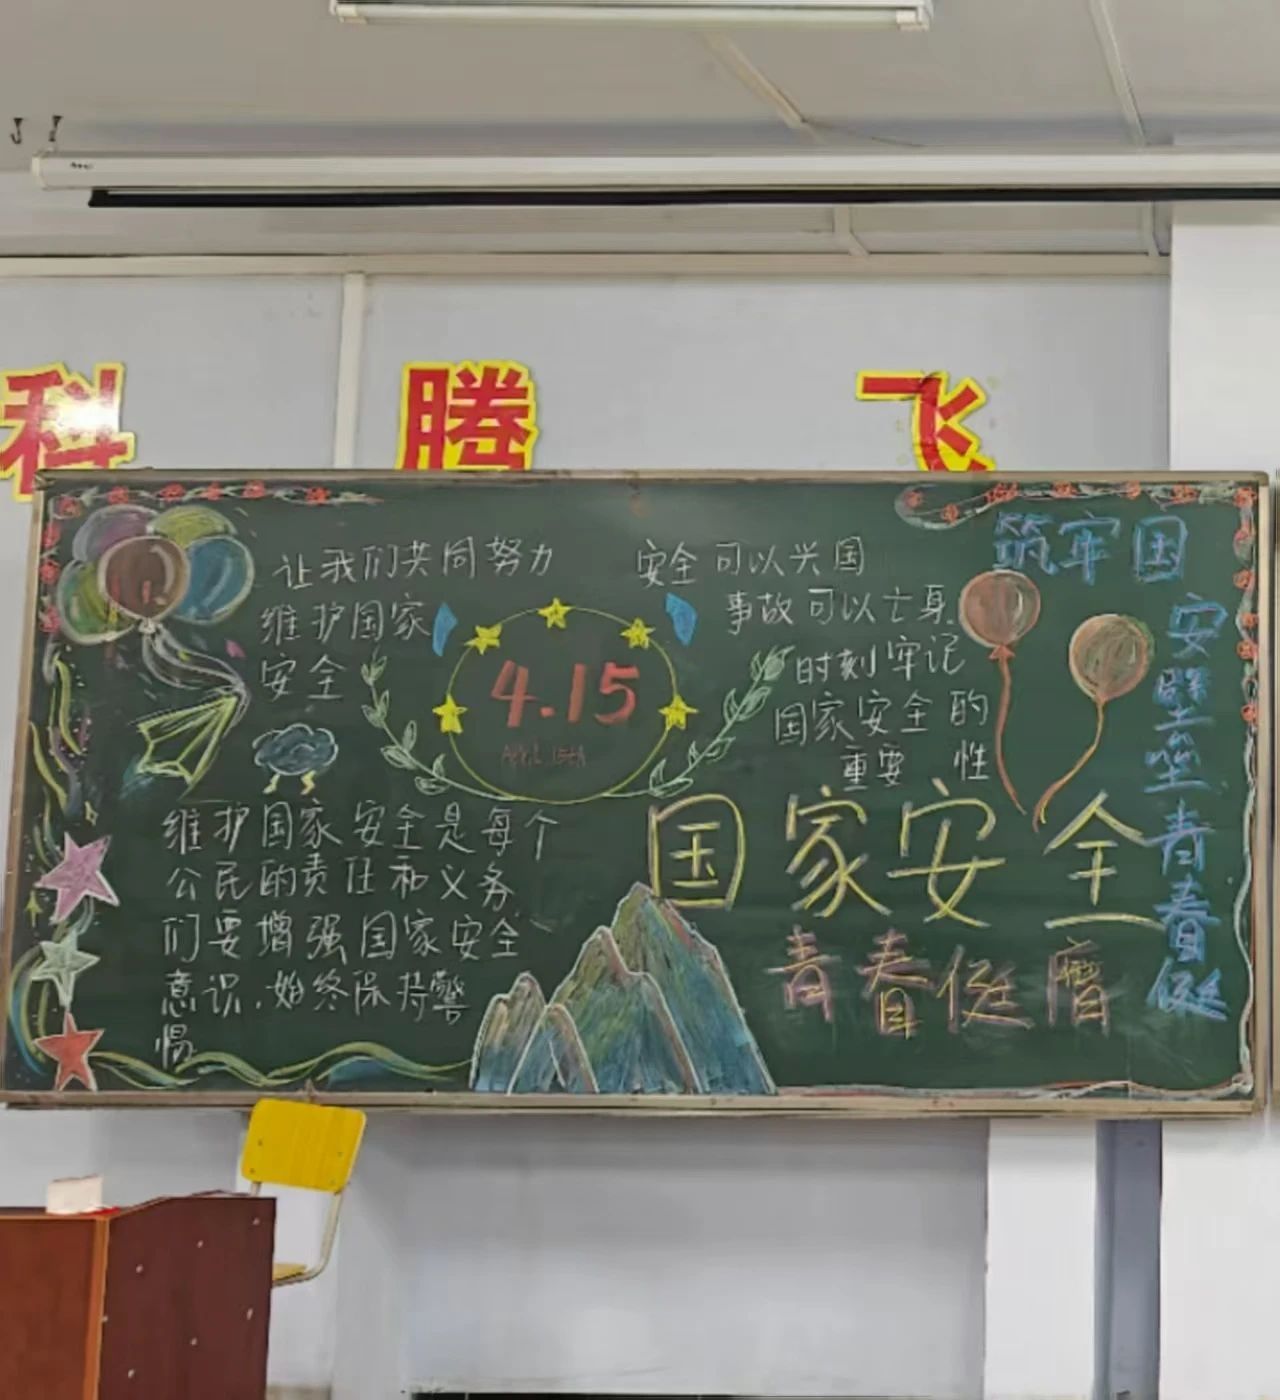 科 腾 飞
让我们共同努力
维护国家
安全
4.15
April 15th
安全可以兴国
事故可以亡身
时刻牢记
国家安全的
重要 性
筑牢国
安壁垒青春挺
国家安全
青春挺膺
维护国家安全是每个
公民的责任和义务
们要增强国家安全
意识,始终保持警
惕